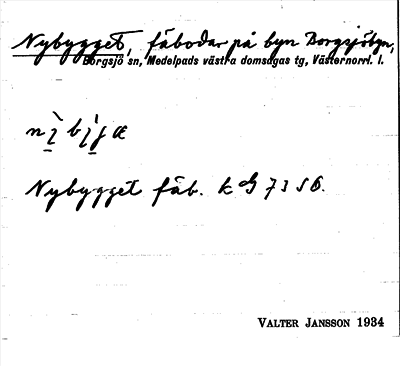 Nybygget, fäbodar på byn Borgsjöbyn,
Borgsjö sn, Medelpads västra domsagas tg, Västernorrl. l.
Nybygget fäb. k 73 S6.
VALTER JANSSON 1934